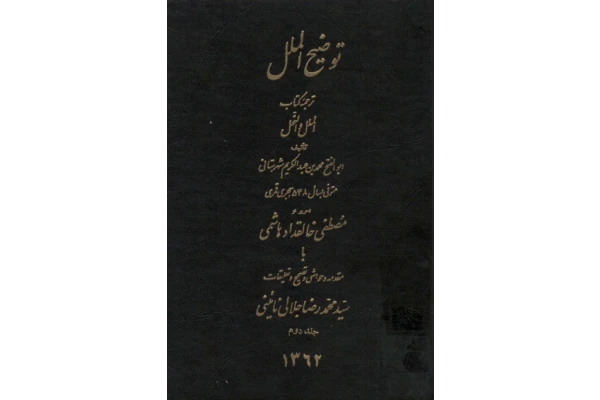 توضیح الملل
ترجمهٔ کتاب
الملل و النحل
تألیف
ابوالفتح محمد بن عبدالکریم شهرستانی
متوفی بسال ۵۴۸ هجری قمری
مصطفی خالقداد هاشمی
با
مقدمه و حواشی و تصحیح و تعلیقات
سید محمد رضا جلالی نائینی
جلد دوم
۱۳۶۲